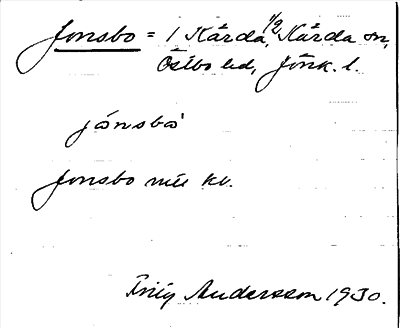 Jonsbo = 1 Kärda, 1/2 Kärda sn,
Östbo hd, Jönk. l.
jónsbò
Jonsbo
Andersson 1930.